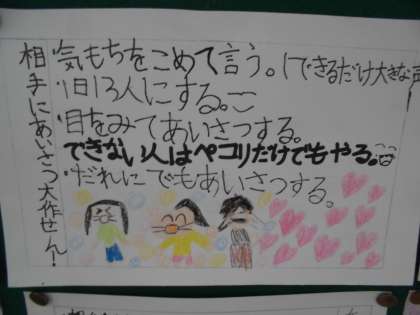 相手にあいさつ大作せん!
・気もちをこめて言う。(できるだけ大きな声
・1日13人にする。
・目をみてあいさつする。
できない人はペコリだけでもやる。
・だれにでもあいさつする。